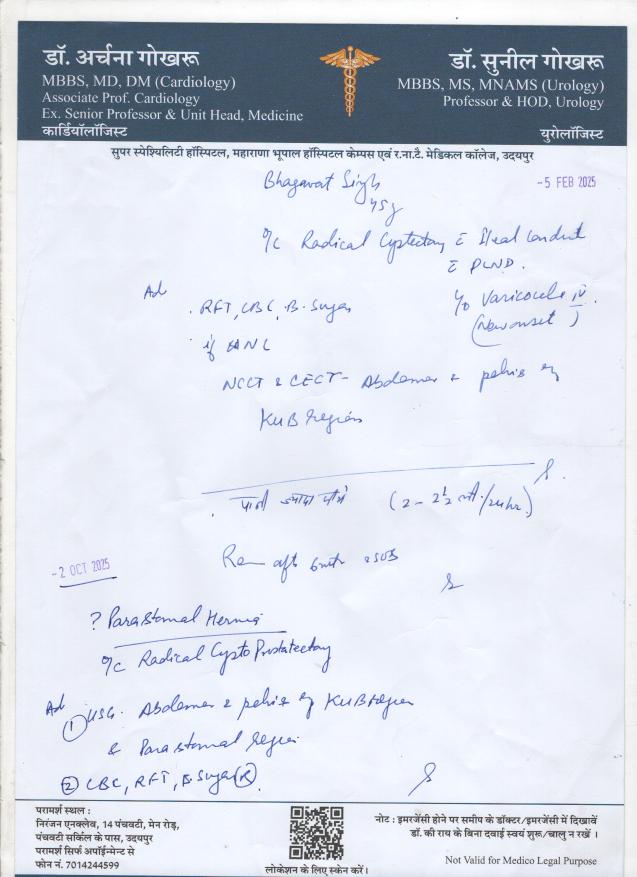 डॉ. अर्चना गोखरू
MBBS, MD, DM (Cardiology)
Associate Prof. Cardiology
Ex. Senior Professor & Unit Head, Medicine
कार्डियॉलॉजिस्ट
डॉ. सुनील गोखरू
MBBS, MS, MNAMS (Urology)
Professor & HOD, Urology
युरोलॉजिस्ट
सुपर स्पेश्यिलिटी हॉस्पिटल, महाराणा भूपाल हॉस्पिटल केम्पस एवं र.ना.टै. मेडिकल कॉलेज, उदयपुर
Bhagawat Singh
- 5 FEB 2025
45y
O/C Radical Cystectomy c Ileal Conduit
c PLND.
Ad
Y/o Varicocele IV.
(New onset)
. RFT, CBC, B. Sugar
. if WNL
NCCT & CECT - Abdomen & pelvis
KUB Region
. पानी ज्यादा पीये (2 - 2½ ली./24hr.)
Rev aft
- 2 OCT 2025
? Parastomal Hernia
O/C Radical Cysto Prostatectomy
Ad
① USG. Abdomen & pelvis KUB Region
& Parastomal Region
② CBC, RFT, B. Sugar (R).
परामर्श स्थल :
निरंजन एनक्लेव, 14 पंचवटी, मेन रोड़,
पंचवटी सर्किल के पास, उदयपुर
परामर्श सिर्फ अपॉईन्मेन्ट से
फोन नं. 7014244599
लोकेशन के लिए स्केन करें।
नोट : इमरजेंसी होने पर समीप के डॉक्टर/इमरजेंसी में दिखावें
डॉ. की राय के बिना दवाई स्वयं शुरू/चालु न रखें ।
Not Valid for Medico Legal Purpose